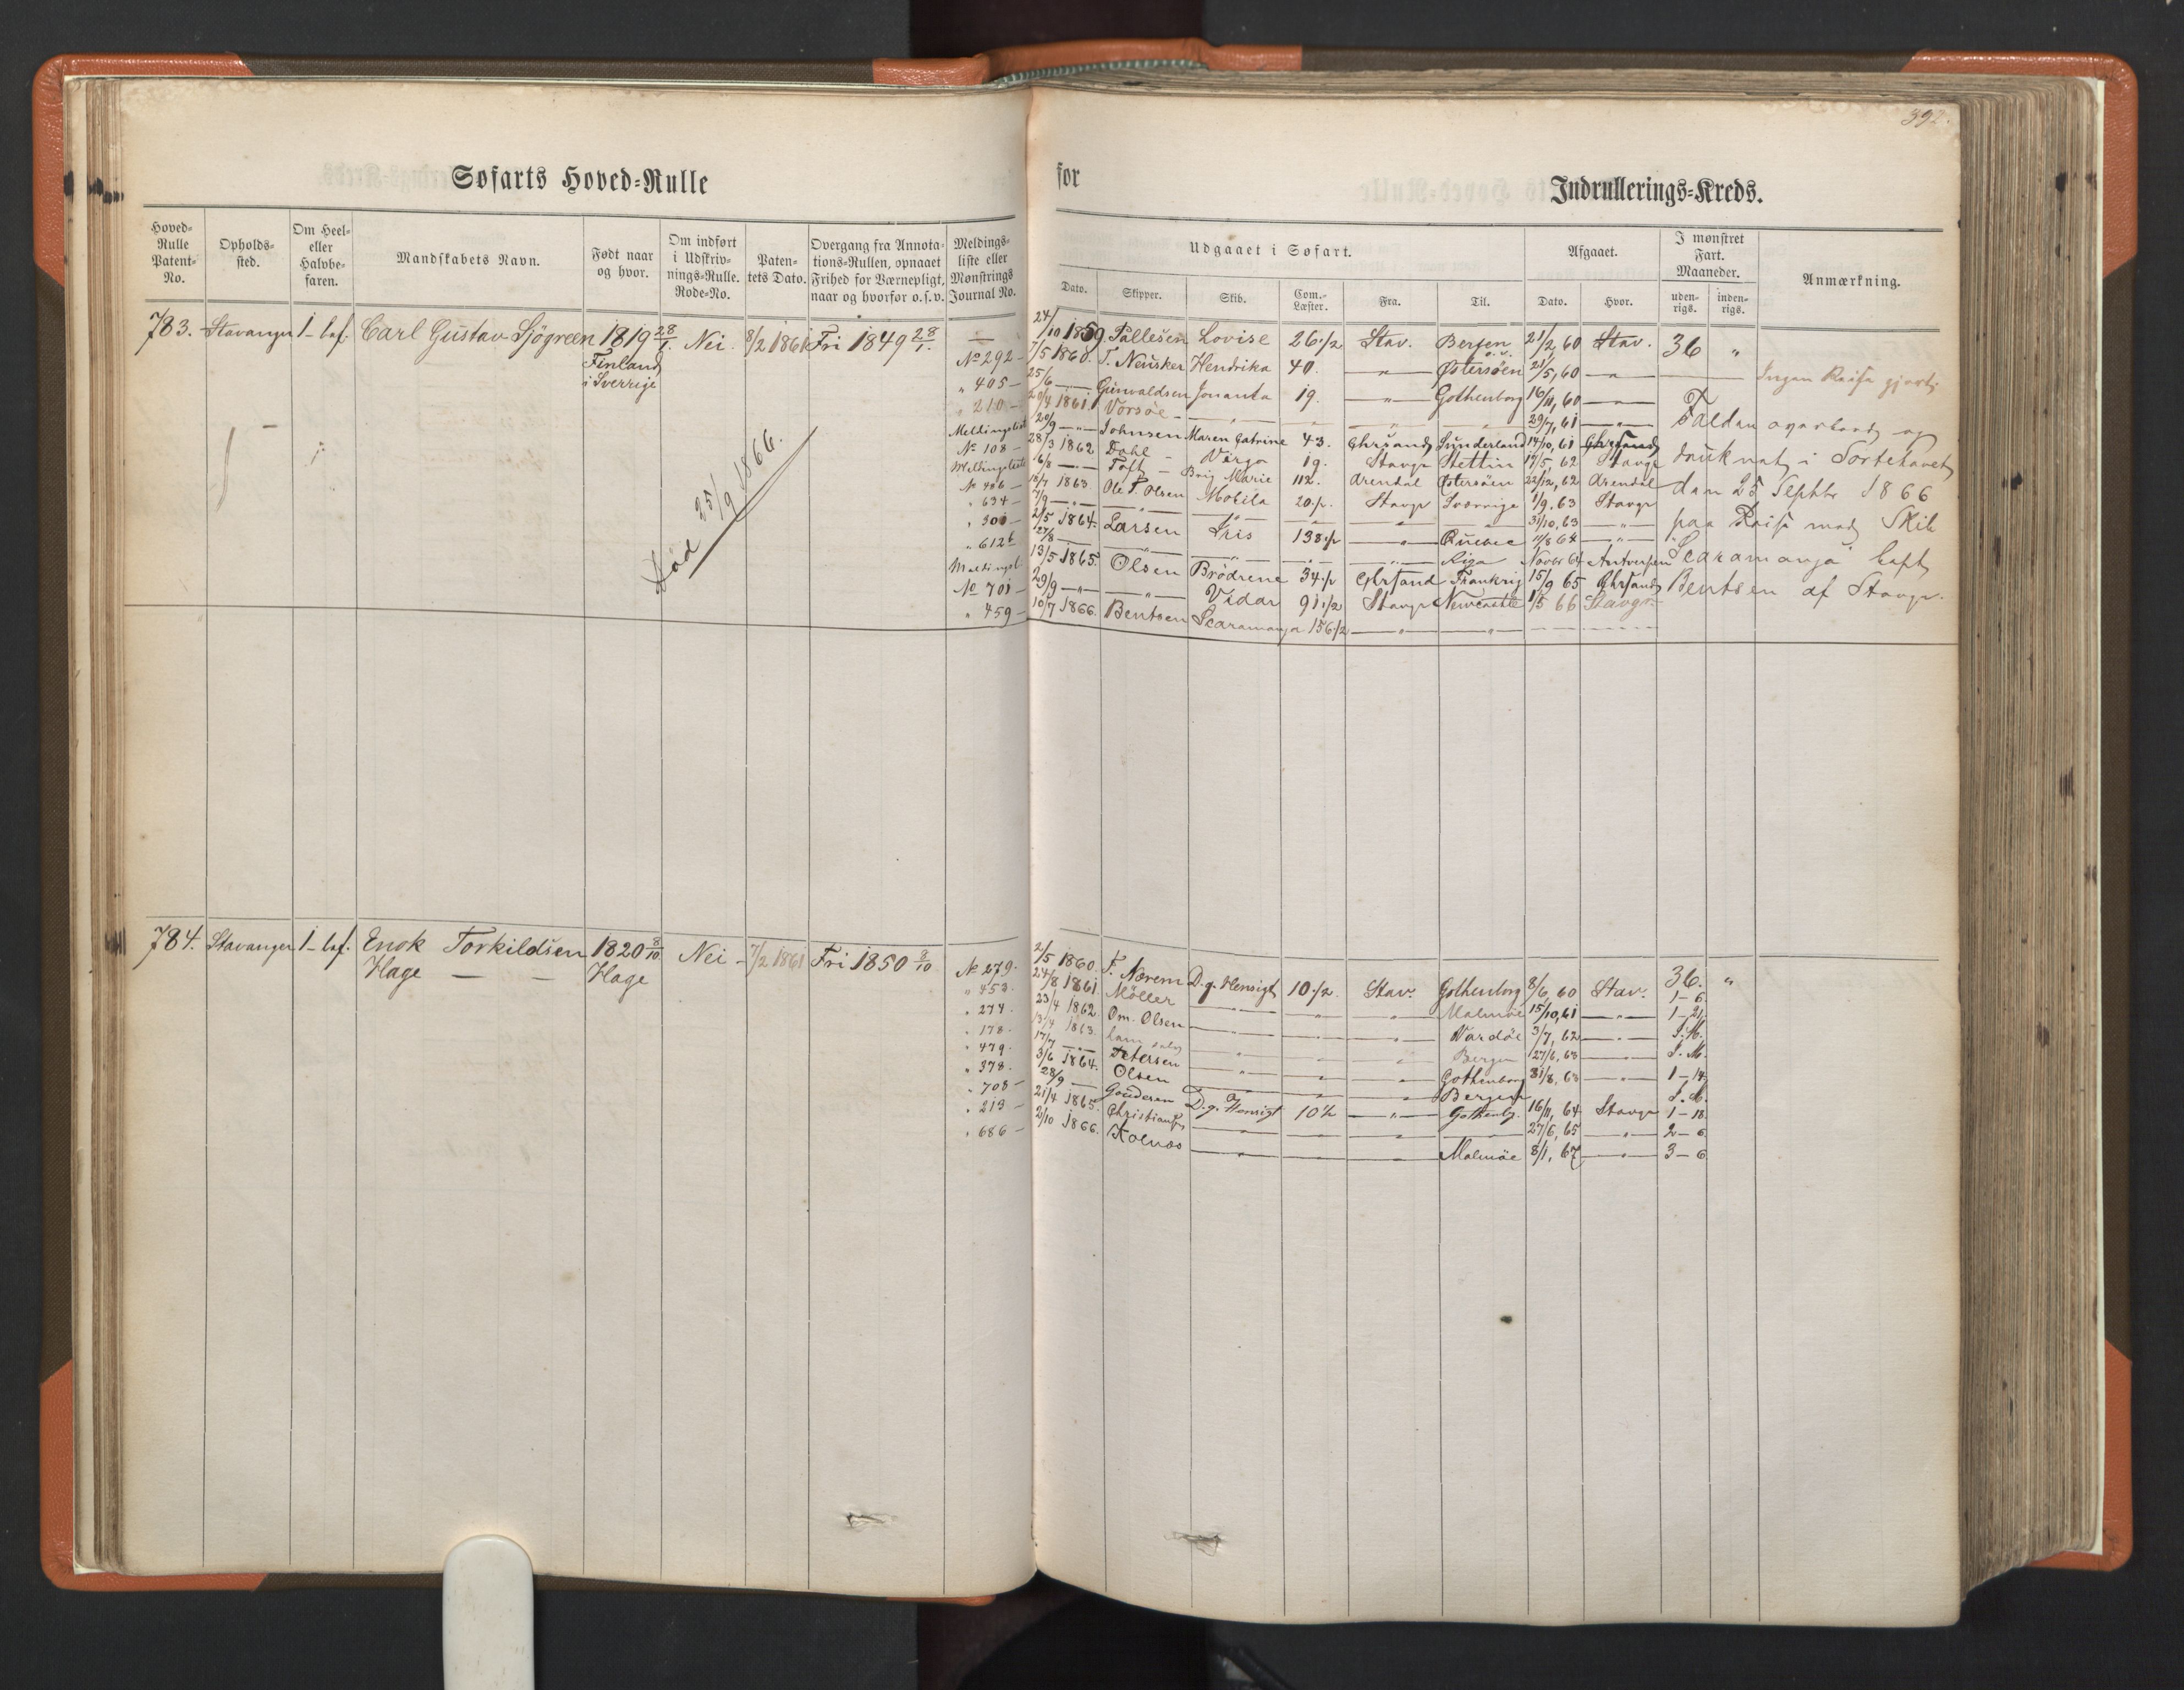 392.
Søfarts Hoved-Rulle for Indrullerings-Kreds.
Hoved-Rulle Patent-No.
Opholds-sted.
Om Heel- eller Halvbe-faren.
Mandskabets Navn.
Født naar og hvor.
Om indført i Udskriv-nings-Rulle. Rode-No.
Paten-tets Dato.
Overgang fra Annota-tions-Rullen, opnaaet Frihed for Værnepligt, naar og hvorfor o.s.v.
Meldings-liste eller Mønstrings Journal No.
Udgaaet i Søfart.
Dato.
Skipper.
Skib.
Com.-Læster.
Fra.
Til.
Afgaaet.
Dato.
Hvor.
I mønstret Fart. Maaneder.
uden-rigs.
inden-rigs.
Anmærkning.
783. Stavanger 1-bef. Carl Gustav Sjögreen 1819 28/1. Nei. 8/2 1861 Fri 1849 28/1.
Finland
i Sverrige
Død 25/9 1866.
— 24/10 1859 Pallesen Lovise 26 1/2 Stav. Bergen 21/2, 60 Stav. 36 "
No 292 - 7/5 1860. T. Neusker Hendrika 40. — " — Østersöen 21/5, 60 — " —
" 405 - 25/6 — Gunvaldsen Jonanta 19. — " — Gothenborg 16/11, 60 — " —
" 210 - 20/4 1861. Vorsöe - — " — — — — 29/7, 61 — " —
Meldingslist 20/9 — " — Johnsen Maren Catrine 43. Chrsand Sunderland 14/10, 61 Chrsand
No 108 - 28/3 1862 Dahl - Virgo 19. Stavgr Stettin 17/5, 62 Stavgr
Meldingsliste 6/8 — " — Toft - Brig Marie 112. Arendal Østersöen 22/12, 62 Arendal
No 486 - 18/7 1863 Ole T. Olsen Mobila 20 1/2 Stavgr Sverrige 1/9. 63 Stavgr
" 634 - 7/9 — " — — " — — " — — — — 31/10, 63 — " —
" 300 - 2/5 1864. Larsen Iris 138 1/2 — " — Quebec 11/8 64 — " —
" 612 b 27/8 — — " — — " — — — " — Riga Novbr 64 Antverpen
Meldingsl. 13/5 1865. Olsen Brödrene 34 1/2 Chrsand Frankrig 15/9 65 Chrsand
No 701 - 29/9 — " — — " — Vidar 91 1/2 Stavgr Newcastle 1/5 66 Stavgr
" 459 - 10/7 1866. Bentsen Scaramanga 156 1/2 — " — — " —
Ingen Reise gjort.
Falden overbord og
druknet i Sortehavet
den 25 Septbr 1866
paa Reise med Skib
Scaramanga Capt
Bentsen af Stavgr.
784. Stavanger 1-bef. Enok Torkildsen 1820 8/10 Nei - 7/2 1861 Fri 1850 8/10
Hage — — Hage
No 279. 2/5 1860. T. Nærem D. g. Hensigt 10 1/2. Stav. Gothenborg 8/6, 60 Stav. 36. "
" 453. 24/8 1861 Möller — " — — " — — " — Malmöe 15/10, 61 — " — 1-6.
" 274. 23/4 1862. Om. Olsen — " — — " — — " — Vardöe 3/7, 62 — " — 1-21.
" 178. 13/4 1863. — " — — " — — " — Bergen 27/6, 63 — " — S.M.
" 479. 17/7 — " — Petersen — " — — " — — " — Gothenborg 31/8, 63 — " — S.M.
" 378. 3/6 1864. Olsen — " — — " — — " — Bergen 1-14
" 708 - 28/9 — Gouderen D. g. Hensigt 10 1/2 — " — Gothenbg. 16/11, 64 Stavgr 1-18
" 213 - 21/4 1865. Christians — — — — 27/6, 65 — " — 2-6
" 686 - 2/10 1866. Kolnes — " — — — Malmöe 8/1, 67 — " — 3-6